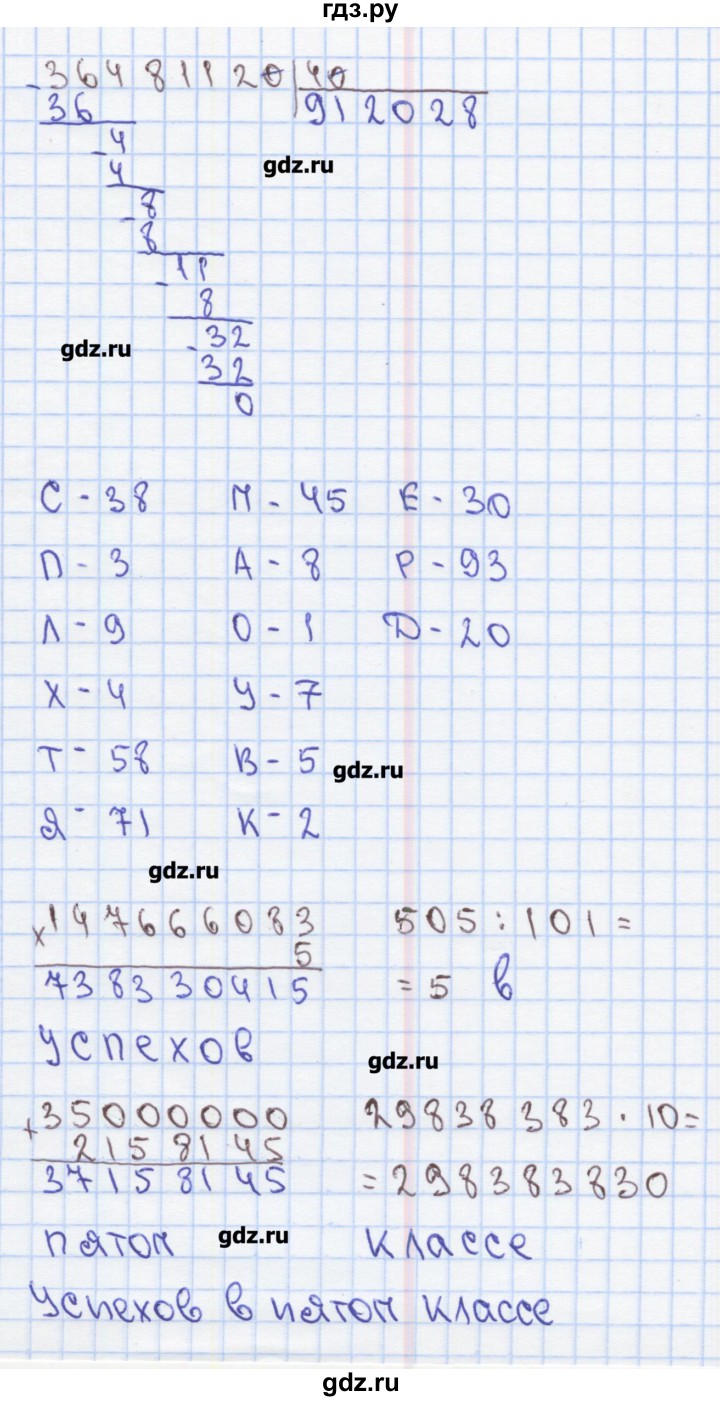 гдз.ру
- 36481120 | 40
36 912028
- 4
4
gdz.ru
- 8
8
- 11
8
gdz.ru
- 32
32
0
С - 38 М - 45 Е - 30
П - 3 А - 8 Р - 93
Л - 9 О - 1 Д - 20
Х - 4 У - 7
Т - 58 В - 5
gdz.ru
Я - 71 К - 2
gdz.ru
× 147666083 505 : 101 =
5
738330415 = 5 в
успехов
gdz.ru
+ 35000000 29838383 · 10 =
2158145
37158145 = 298383830
пятом gdz.ru классе
Успехов в пятом классе
gdz.ru